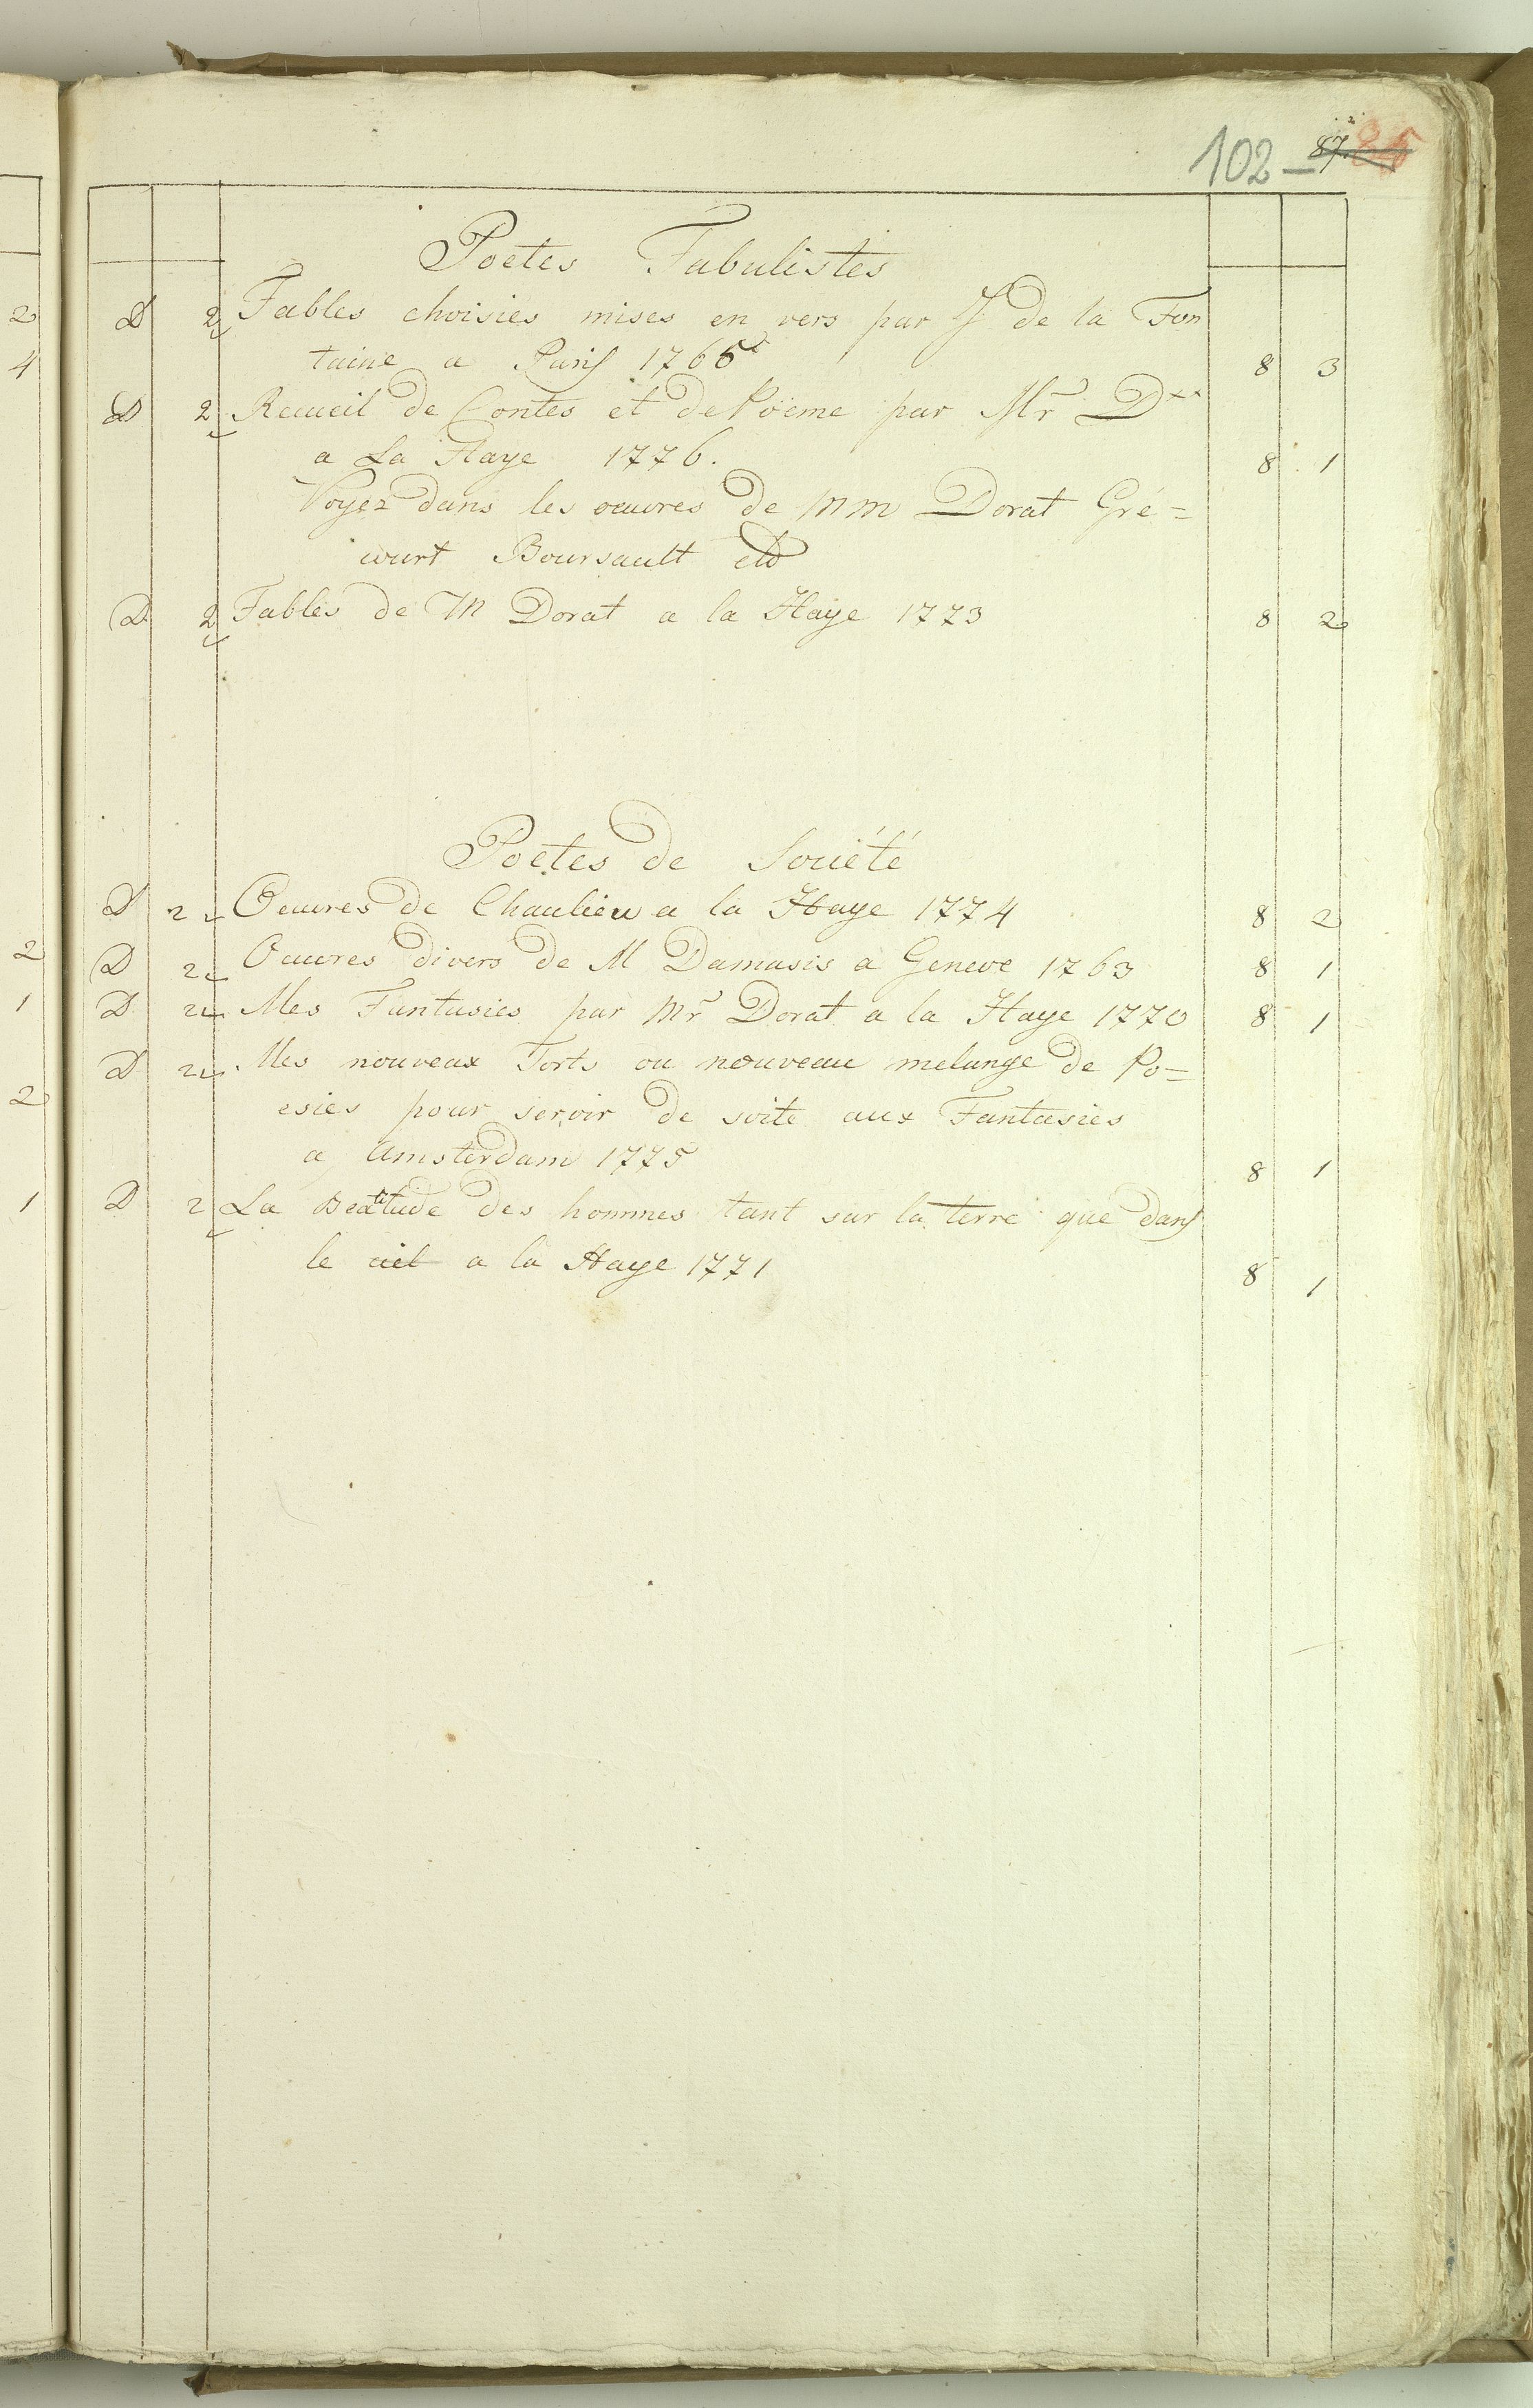 102 - 87.
Poetes Fabulistes
D 2 Fables choisies mises en vers par J de la Fon
taine a Paris 1765 8 3
D 2 Recueil de Contes et de Poëme par Mr D**
a La Haye 1776. 8 1
Voyez dans les oeuvres de MM Dorat Gré=
court Boursault etc
D 2 Fables de M Dorat a la Haye 1773 8 2
Poetes de Société
D 2 Oeuvres de Chaulieu a la Haye 1774 8 2
2 D 2 Oeuvres divers de M Damasis a Geneve 1763 8 1
1 D 2 Mes Fantasies par Mr Dorat a la Haye 1770 8 1
D 2 Mes nouveax Torts ou nouveau melange de Po=
2 esies pour servir de suite aux Fantasies
a Amsterdam 1775 8 1
1 D 2 La Beatitude des hommes tant sur la terre que dans
le ciel a la Haye 1771 8 1